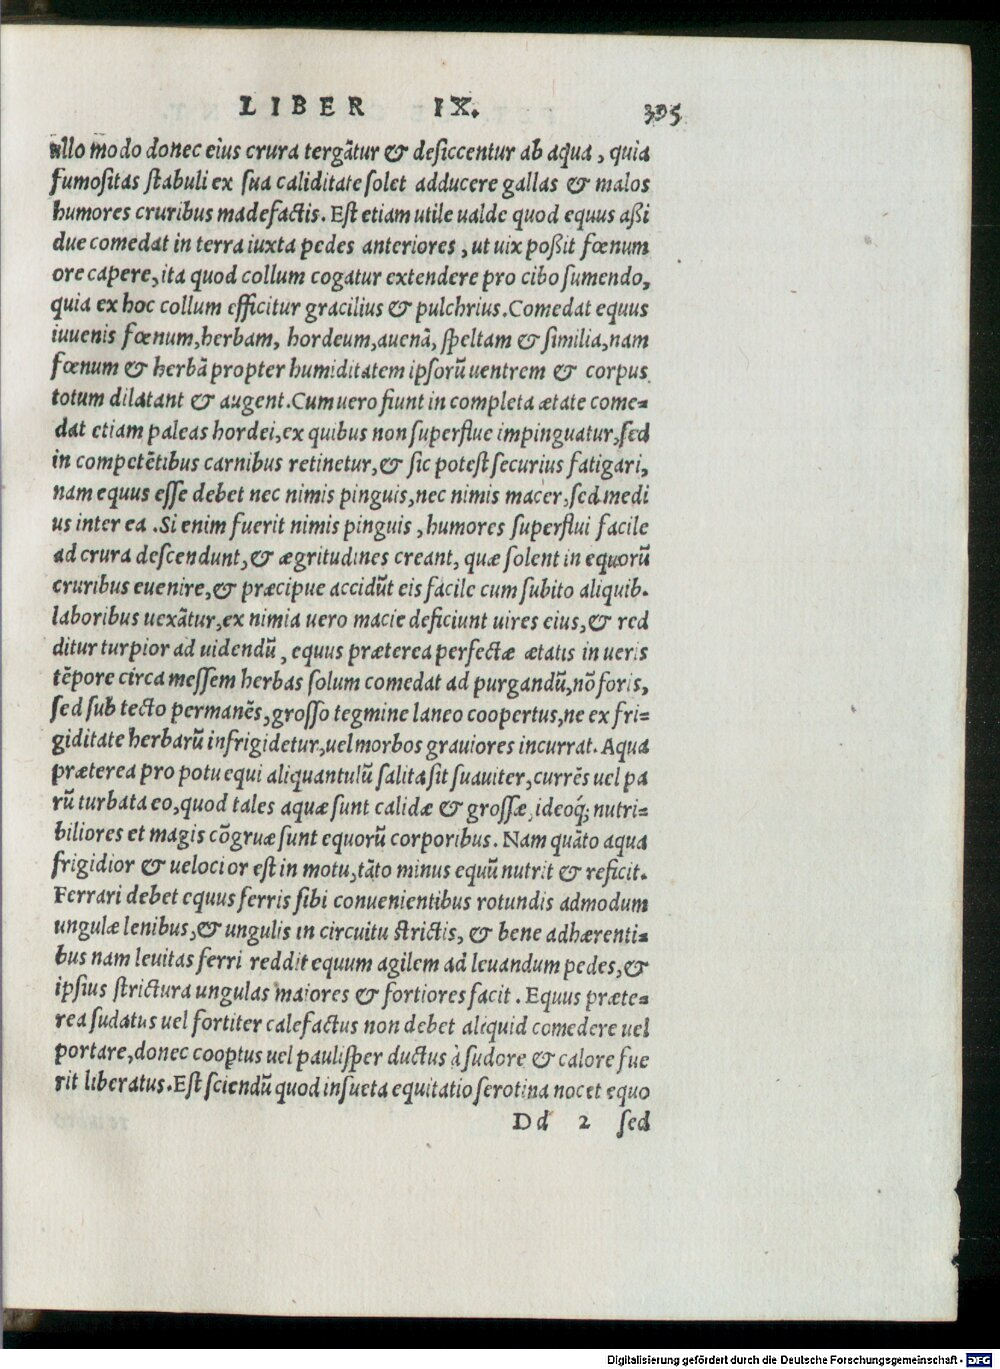 LIBER IX. 335
ullo modo donec eius crura tergãtur & desiccentur ab aqua, quia
fumositas stabuli ex sua caliditate solet adducere gallas & malos
humores cruribus madefactis. Est etiam utile ualde quod equus aßi
due comedat in terra iuxta pedes anteriores, ut uix poßit fœnum
ore capere, ita quod collum cogatur extendere pro cibo sumendo,
quia ex hoc collum efficitur gracilius & pulchrius. Comedat equus
iuuenis fœnum, herbam, hordeum, auenã, speltam & similia, nam
fœnum & herbã propter humiditatem ipsorũ uentrem & corpus
totum dilatant & augent. Cum uero fiunt in completa ætate come=
dat etiam paleas hordei, ex quibus non superflue impinguatur, sed
in competẽtibus carnibus retinetur, & sic potest securius fatigari,
nam equus esse debet nec nimis pinguis, nec nimis macer, sed medi
us inter ea. Si enim fuerit nimis pinguis, humores superflui facile
ad crura descendunt, & ægritudines creant, quæ solent in equorũ
cruribus euenire, & præcipue accidũt eis facile cum subito aliquib.
laboribus uexãtur, ex nimia uero macie deficiunt uires eius, & red
ditur turpior ad uidendũ, equus præterea perfectæ ætatis in ueris
tẽpore circa messem herbas solum comedat ad purgandũ, nõ foris,
sed sub tecto permanẽs, grosso tegmine laneo coopertus, ne ex fri=
giditate herbarũ infrigidetur, uel morbos grauiores incurrat. Aqua
præterea pro potu equi aliquantulũ salita sit suauiter, currẽs uel pa
rũ turbata eo, quod tales aquæ sunt calidæ & grossæ, ideoq́; nutri=
biliores et magis cõgruæ sunt equorũ corporibus. Nam quãto aqua
frigidior & uelocior est in motu, tãto minus equũ nutrit & reficit.
Ferrari debet equus ferris sibi conuenientibus rotundis admodum
ungulæ lenibus, & ungulis in circuitu strictis, & bene adhærenti=
bus nam leuitas ferri reddit equum agilem ad leuandum pedes, &
ipsius strictura ungulas maiores & fortiores facit. Equus præte=
rea sudatus uel fortiter calefactus non debet aliquid comedere uel
portare, donec cooptus uel paulisper ductus à sudore & calore fue
rit liberatus. Est sciendũ quod insueta equitatio serotina nocet equo
Dd 2 sed
Digitalisierung gefördert durch die Deutsche Forschungsgemeinschaft - DFG